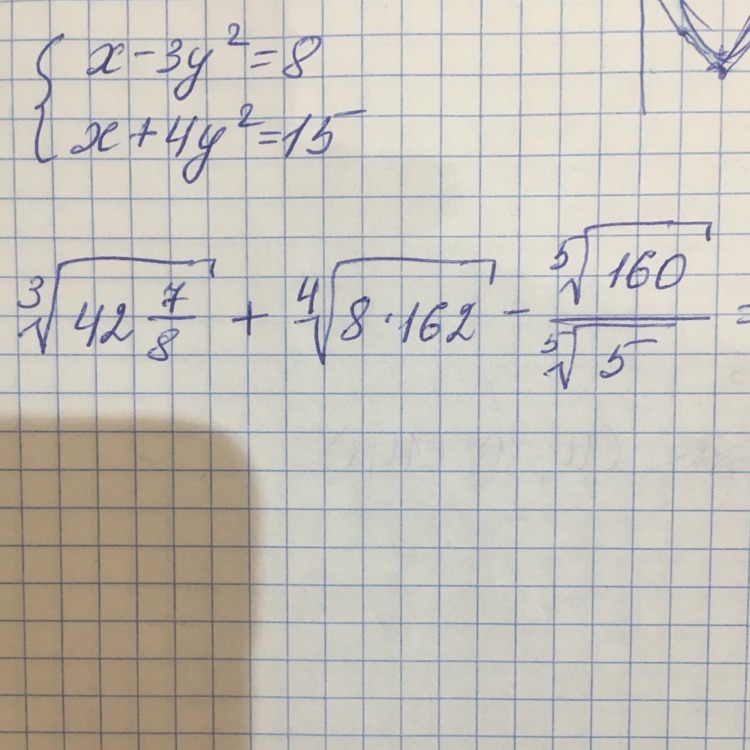 { x - 3y² = 8
x + 4y² = 15
∛(42 7/8) + ∜(8·162) - ⁵√160 / ⁵√5 =